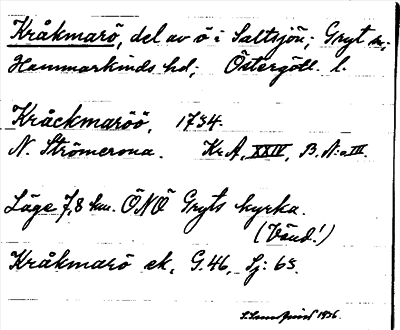 Kråkmarö, del av ö i Saltsjön; Gryt sn;
Hammarkinds hd; Östergötl. l.
Kråckmaröö, 1734.
N. Strömcrona. Kr. A, XXIV, B. N:o III.
Läge 7,8 km. ÖNÖ Gryts kyrka.
(Vänd!)
Kråkmarö ek. G. 46, Sj: 65.
1936.